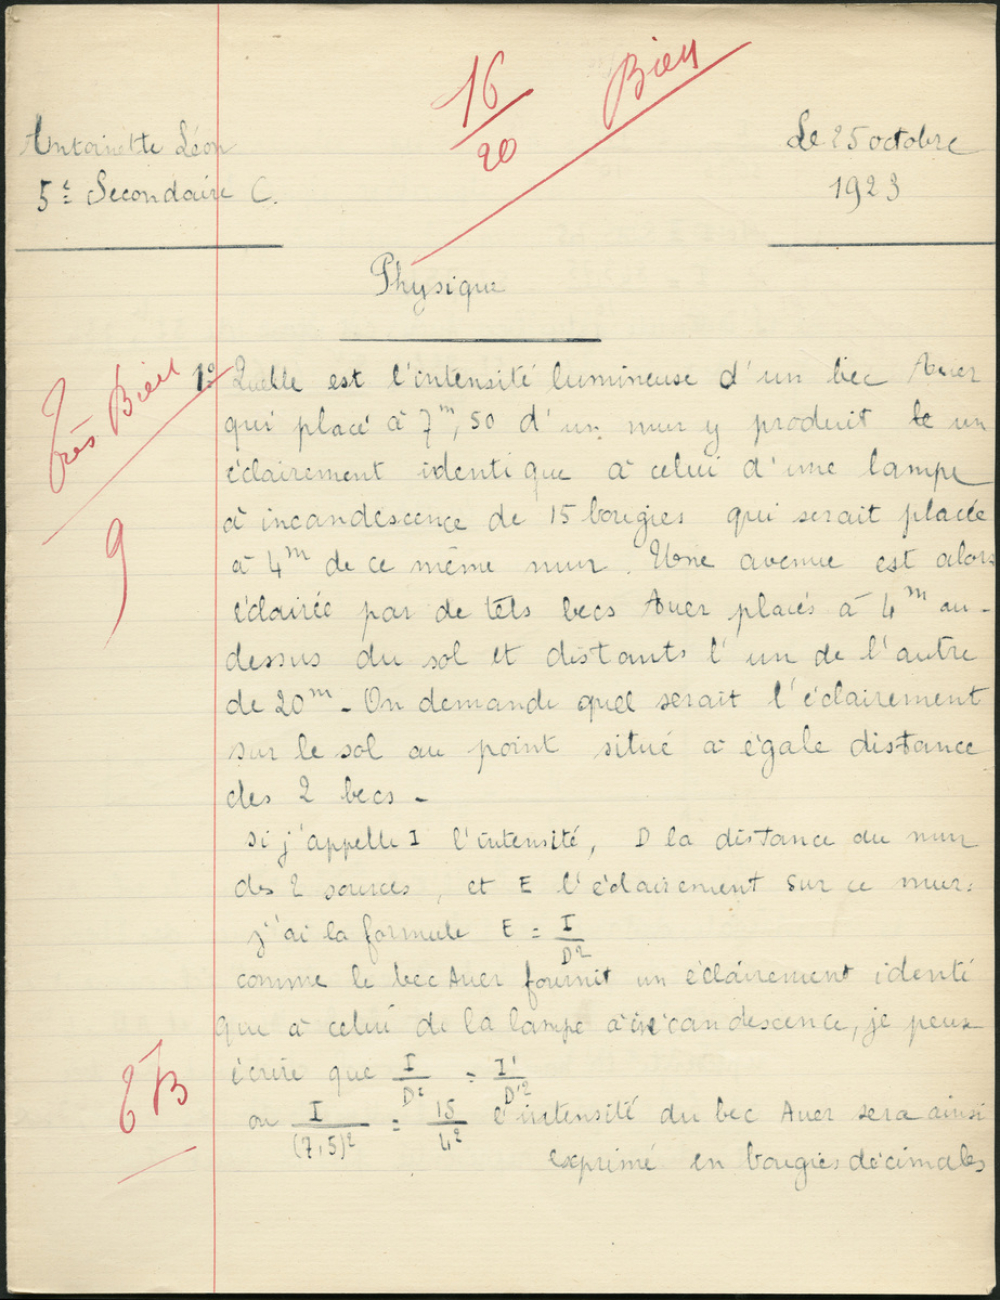 16
20
Bien
Antoinette Léon
5e Secondaire C.
Le 25 octobre
1923
Physique
Très Bien
9
1° Quelle est l'intensité lumineuse d'un bec Auer
qui placé à 7m,50 d'un mur y produit le un
éclairement identique à celui d'une lampe
à incandescence de 15 bougies qui serait placée
à 4m de ce même mur. Une avenue est alors
éclairée par de tels becs Auer placés à 4m au-
dessus du sol et distants l'un de l'autre
de 20m - On demande quel serait l'éclairement
sur le sol au point situé à égale distance
des 2 becs -
si j'appelle I l'intensité, D la distance du mur
des 2 sources, et E l'éclairement sur ce mur:
j'ai la formule E = I/D²
comme le bec Auer fournit un éclairement identi
que à celui de la lampe à incandescence, je peux
écrire que I/D² = I'/D'²
ou I/(7,5)² = 15/4² l'intensité du bec Auer sera ainsi
exprimé en bougies décimales
TB